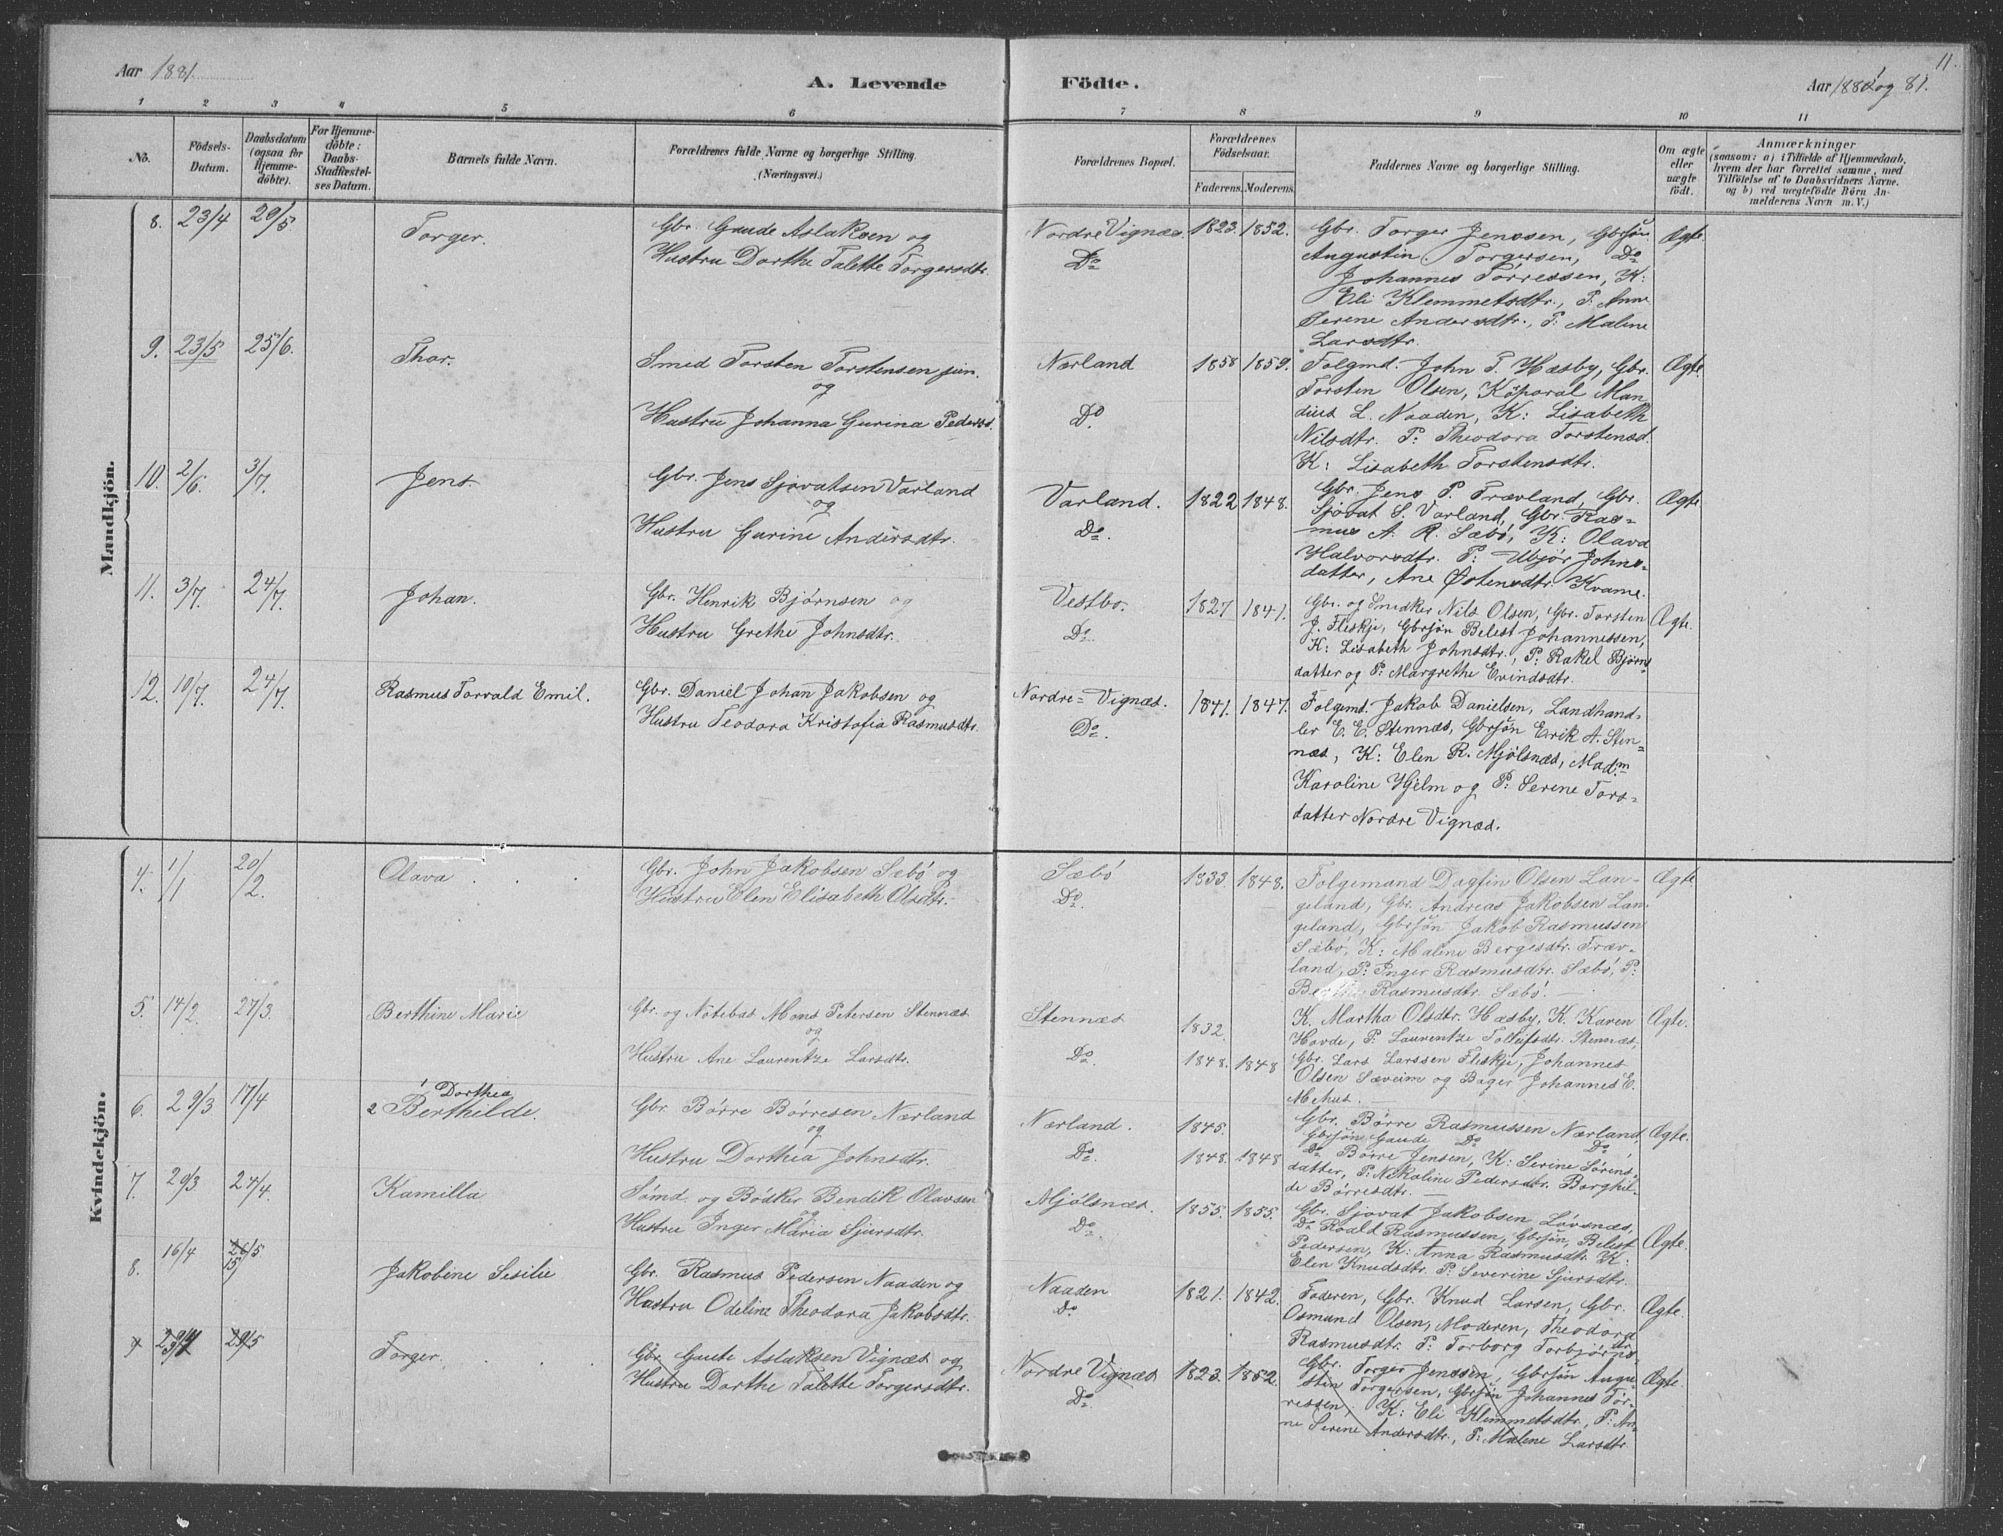 Aar 1881.
A. Levende Födte.
Aar 1881 og 81.
11.
1 2 3 4 5 6 7 8 9 10 11
No.
Födsels-Datum.
Daabsdatum (ogsaa for Hjemme-döbte).
For Hjemme-döbte: Daabs-Stadfæstel-ses Datum.
Barnets fulde Navn.
Forældrenes fulde Navne og borgerlige Stilling.
(Næringsvei.)
Forældrenes Bopæl.
Forældrenes Födselsaar.
Faderens. Moderens.
Faddernes Navne og borgerlige Stilling.
Om ægte eller uægte födt.
Anmærkninger
(saasom: a) i Tilfælde af Hjemmedaab, hvem der har forrettet samme, med Tilföielse af to Daabsvidners Navne. og b) ved uægtefödte Börn An-melderens Navn m. V.)
Mandkjön.
8. 23/4 29/5 Torger.
Gbr. Gaude Aslaksen og
Hustru Dorthe Talette Torgersdtr.
Nordre Vignæs. 1823. 1852.
Do
Gbr. Torger Jenssen, Gbrsön
Augustin Torgersen, Do
Johannes Tørressen, K:
Eli Klemmetsdtr., P. Anne
Serene Andersdtr., P. Malene
Larsdtr.
Ægte.
9. 23/5 25/6. Thor.
Smed Torsten Torstensen jun.
og
Hustru Johanna Gurina Pedersd.
Nærland 1858 1859.
Do.
Folgmd. John T. Hæsby, Gbr.
Torsten Olsen, Köporal Man-
dius L. Naaden, K: Lisabeth
Nilsdtr. P: Theodora Torstensd.
K: Lisabeth Torstensdtr.
Ægte.
10. 2/6. 3/7. Jens.
Gbr. Jens Sjovatsen Varland
og
Hustru Gurine Andersdtr.
Varland. 1822 1848.
Do.
Gbr. Jens P. Trævland, Gbr.
Sjovat S. Varland, Gbr. Ras-
mus A. R. Sæbö, K: Olava
Halvorsdtr. P: Ubjör Johns-
datter, Ane Østensdtr. Kvame.
Ægte
11. 3/7. 24/7. Johan.
Gbr. Henrik Bjørnsen og
Hustru Grethe Johnsdtr.
Vestbo. 1827 1841.
Do.
Gbr. og Smedker Nils Olsen, Gbr. Torsten
J. Fleskje, Gbrsön Belest Johannessen,
K: Lisabeth Johnsdtr., P: Rakel Bjørns-
datter og P. Margrethe Evindsdtr.
Ægte.
12. 10/7. 24/7. Rasmus Torvald Emil.
Gbr. Daniel Johan Jakobsen og
Hustru Teodora Kristofia Rasmusdtr.
Nordre-Vignæs. 1841. 1847.
Do.
Folgmd. Jakob Danielsen, Landhand-
ler E. E. Stennæs, Gbrsön Erik A. Sten-
næs, K: Elen R. Mjölsnæs, Madm
Karoline Hjelm og P: Serene Tors-
datter Nordre Vignæs.
Kvindekjön.
4. 1/1 20/2. Olava . . .
Gbr. John Jakobsen Sæbö og
Hustru Elen Elisabeth Olsdtr.
Sæbö 1833 1848.
Do.
Folgemand Dagfin Olsen Lan-
geland, Gbr. Andreas Jakobsen Lan-
geland, Gbrsön Jakob Rasmussen
Sæbö, K: Malene Bergesdtr. Træv-
land, P: Inger Rasmusdtr. Sæbö, P:
Rasmusdtr. Sæbö.
Ægte
5. 14/2. 27/3. Berthine Marie
Gbr. og Notebas Mons Petersen Stennæs
og
Hustru Ane Laurentze Larsdtr.
Stennæs 1832
Do. 1848. 1848
K. Martha Olsdtr. Hæsby, K. Karen
Hovde, P. Laurentze Tollefsdtr. Stennæs,
Gbr. Lars Larssen Fleskje, Johannes
Olsen Sæveim og Bager Johannes E.
Mehus.
Ægte.
6. 29/3 17/4 1 Dorthea
2 Berthilde
Gbr. Børre Borresen Nærland
og
Hustru Dorthea Johnsdtr.
Nærland. 1845.
Do. 1848. 1848
Gbr. Børre Rasmussen Nærland,
Gbrsön Gaude Do Do,
Do Børre Jensen, K: Serine Sørens-
datter, P: Nikoline Pedersdtr. Borghil-
de Børresdtr.
Ægte.
7. 29/3 27/4. Kamilla
Sömd. og Bödker Bendik Olavsen
og
Hustru Inger Maria Sjursdtr.
Mjölsnæs. 1855. 1855.
Do.
Gbr. Sjovat Jakobsen Lövsnæs,
Do Roald Rasmussen, Gbrsön Belest
Pedersen, K: Anna Rasmusdtr. K:
Elen Knudsdtr. P: Severine Sjursdtr.
Ægte.
8. 16/4 26/5
15 Jakobine Sesilie
Gbr. Rasmus Pedersen Naaden og
Hustru Odeline Theodora Jakobsdtr.
Naaden 1821. 1842.
Do
Faderen, Gbr. Knud Larsen, Gbr.
Osmund Olsen, Moderen, Theodora
Rasmusdtr. P: Torborg Torbjørnsdtr.
Ægte.
9 23/4 29/5 Torger. . .
Gbr. Gaute Aslaksen Vignæs og
Hustru Dorthe Talette Torgersdtr.
Nordre Vignæs 1823. 1852.
Do.
Gbr. Torger Jenssen, Gbrsön Augu-
stin Torgersen, Gbrsön Johannes Tör-
ressen, K: Eli Klemmetsdtr., P: An-
ne Serene Andersdtr., P: Malene Larsdtr.
Ægte.